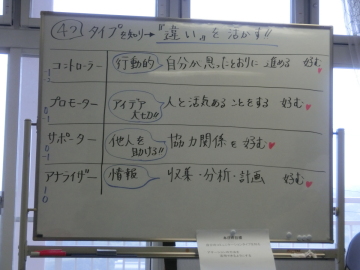 4つのタイプを知り→"違い"を活かす!!
コントローラー 行動的 自分が思ったとおりに進める 好む
プロモーター アイデア 大切!! 人と活気あることをする 好む
サポーター 他人を 助ける!! 協力関係を 好む
アナライザー 情報 収集・分析・計画 好む